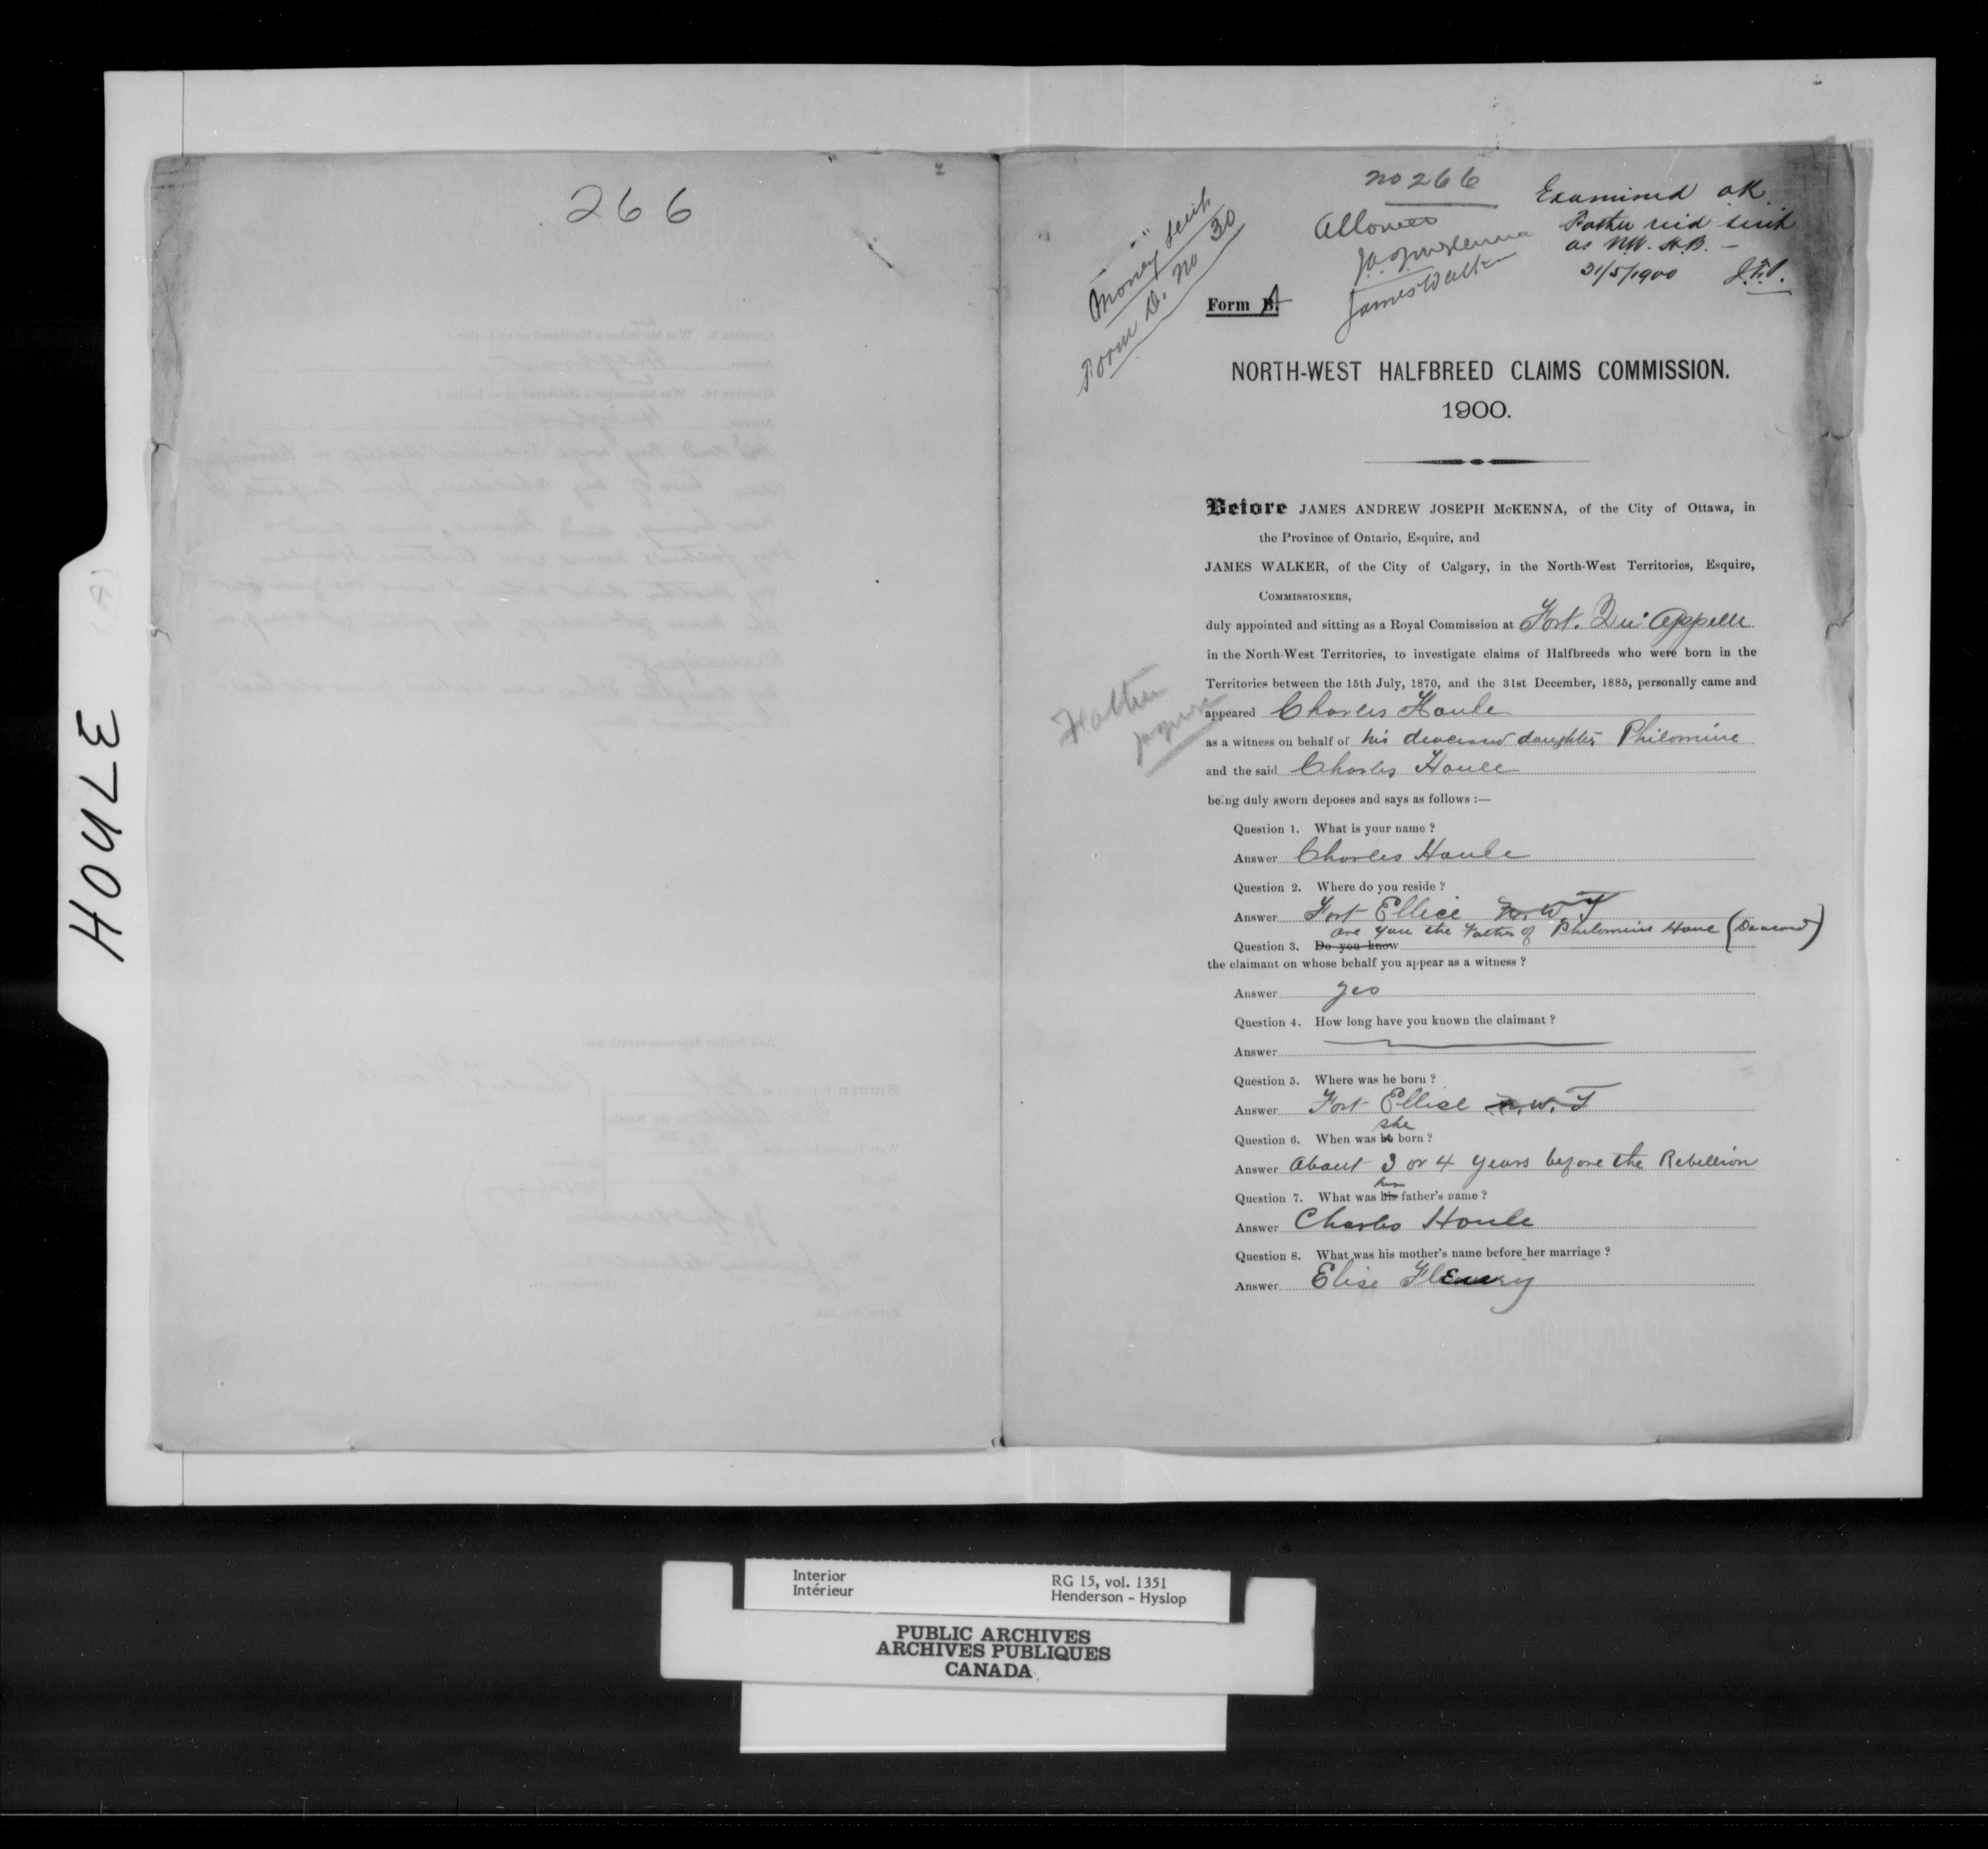 HOULE
266
Money Scrip
Form D. no 30
no 266
Allowed
J.A.J. McKenna
James Walker
Examined OK.
Father rec'd scrip
as N.W. H.B. —
31/5/1900
Form B.
NORTH-WEST HALFBREED CLAIMS COMMISSION.
1900.
Before JAMES ANDREW JOSEPH McKENNA, of the City of Ottawa, in
the Province of Ontario, Esquire, and
JAMES WALKER, of the City of Calgary, in the North-West Territories, Esquire,
COMMISSIONERS,
duly appointed and sitting as a Royal Commission at Fort. Qu'Appelle
in the North-West Territories, to investigate claims of Halfbreeds who were born in the
Territories between the 15th July, 1870, and the 31st December, 1885, personally came and
appeared Charles Houle
as a witness on behalf of his deceased daughter Philomine
and the said Charles Houle
being duly sworn deposes and says as follows :—
Question 1. What is your name ?
Answer Charles Houle
Question 2. Where do you reside ?
Answer Fort Ellice N.W.T
are you the Father of Philomine Houle (Deceased)
Question 3. Do you know
the claimant on whose behalf you appear as a witness ?
Answer yes
Question 4. How long have you known the claimant ?
Answer
Question 5. Where was he born ?
Answer Fort Ellice N.W.T
she
Question 6. When was he born ?
Answer About 3 or 4 years before the Rebellion
her
Question 7. What was his father's name ?
Answer Charles Houle
Question 8. What was his mother's name before her marriage ?
Answer Elise Fleury
Interior
Intérieur
RG 15, vol. 1351
Henderson - Hyslop
PUBLIC ARCHIVES
ARCHIVES PUBLIQUES
CANADA